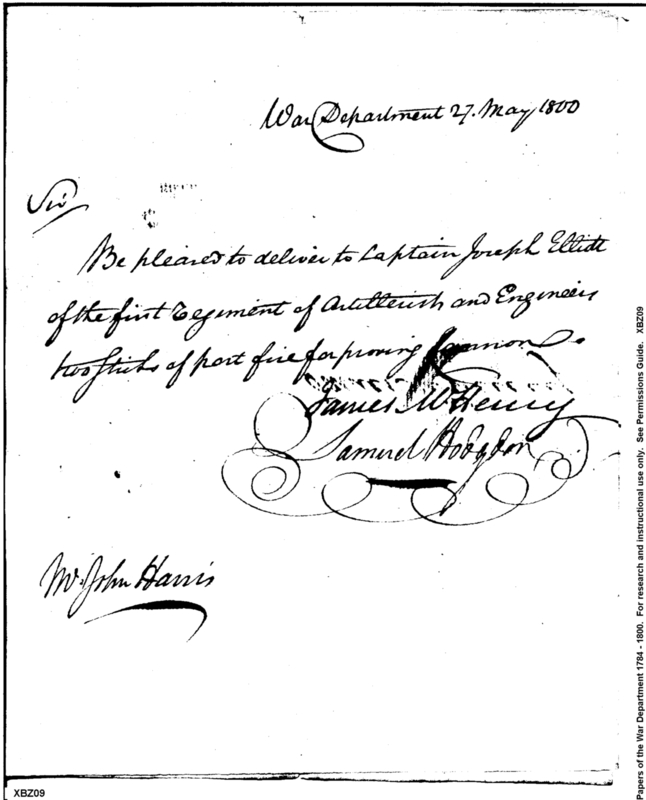 War Department 27. May 1800
Sir
Be pleased to deliver to Captain Joseph Elliott
of the first Regiment of Artillerists and Engineers
two sticks of port fire for proving Cannon.
James McHenry
Samuel Hodgdon
Mr. John Harris
XBZ09
Papers of the War Department 1784 - 1800. For research and instructional use only. See Permissions Guide. XBZ09